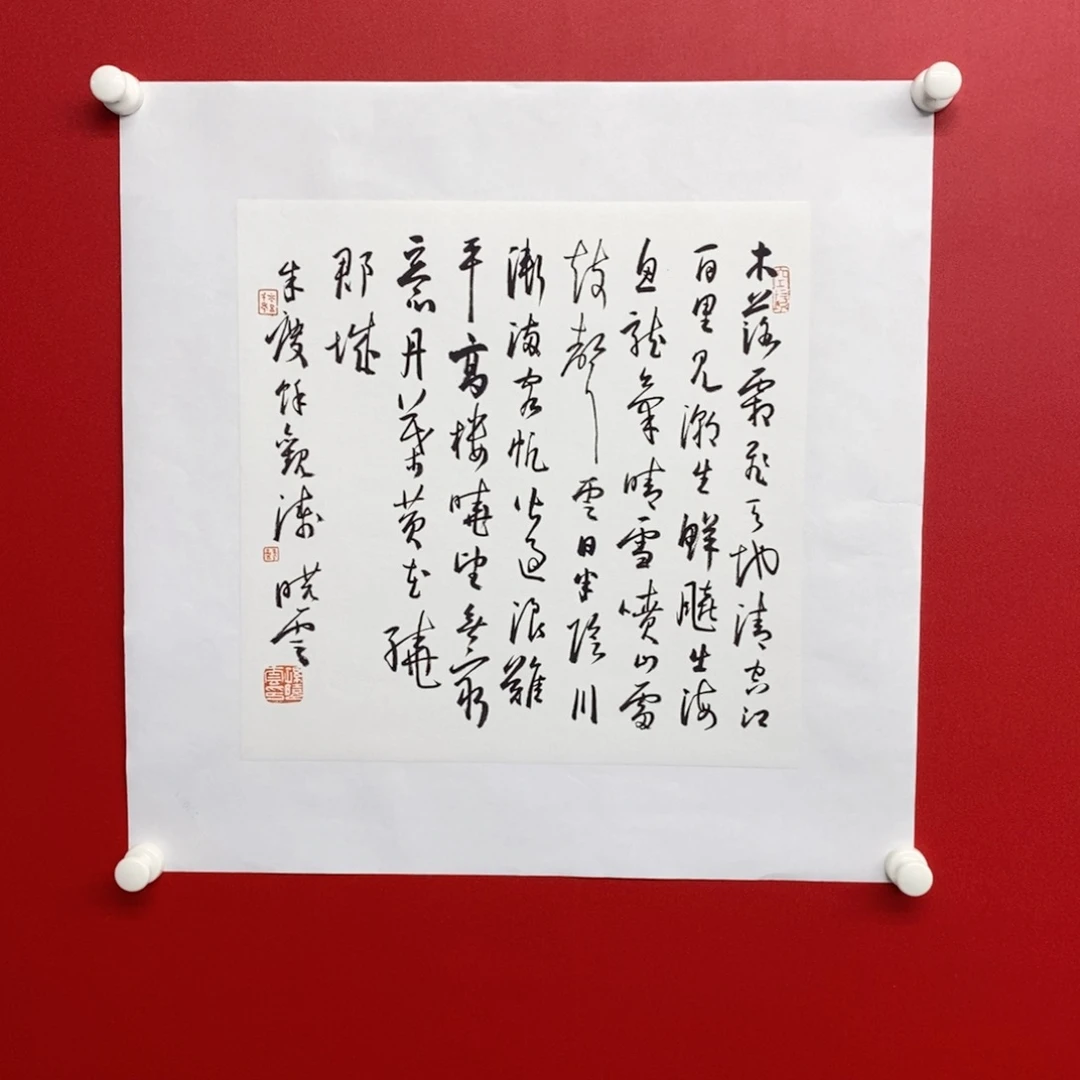 木落霜飛天地清空江
百里見潮生鮮飈出海
魚龍氣晴雪噴山雷
鼓聲雲日半陰川
漸滿客帆皆過浪難
平高樓曉望無窮
意丹葉黃花繞
郡城
朱慶餘觀濤 曉雲